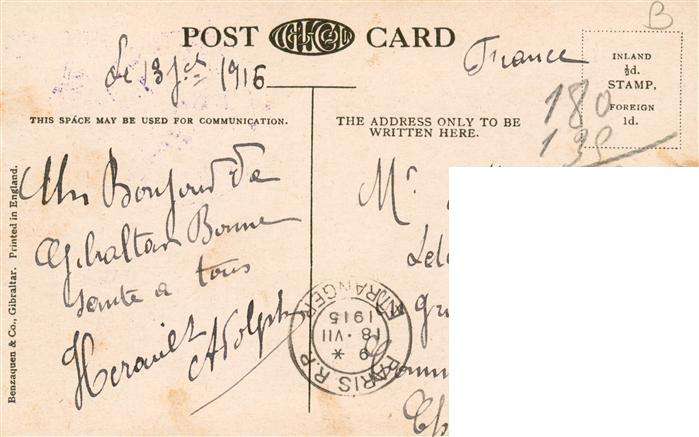 POST CARD
Le 13 Jet 1915
France
INLAND
½d.
STAMP,
FOREIGN
1d.
180
135
B
THIS SPACE MAY BE USED FOR COMMUNICATION.
THE ADDRESS ONLY TO BE
WRITTEN HERE.
Un Bonjour de
Gibraltar Bonne
sante a tous
Herault Adolph
Mr
PARIS R.P.
ETRANGER
9 *
18 · VII
1915
Benzaquen & Co., Gibraltar. Printed in England.